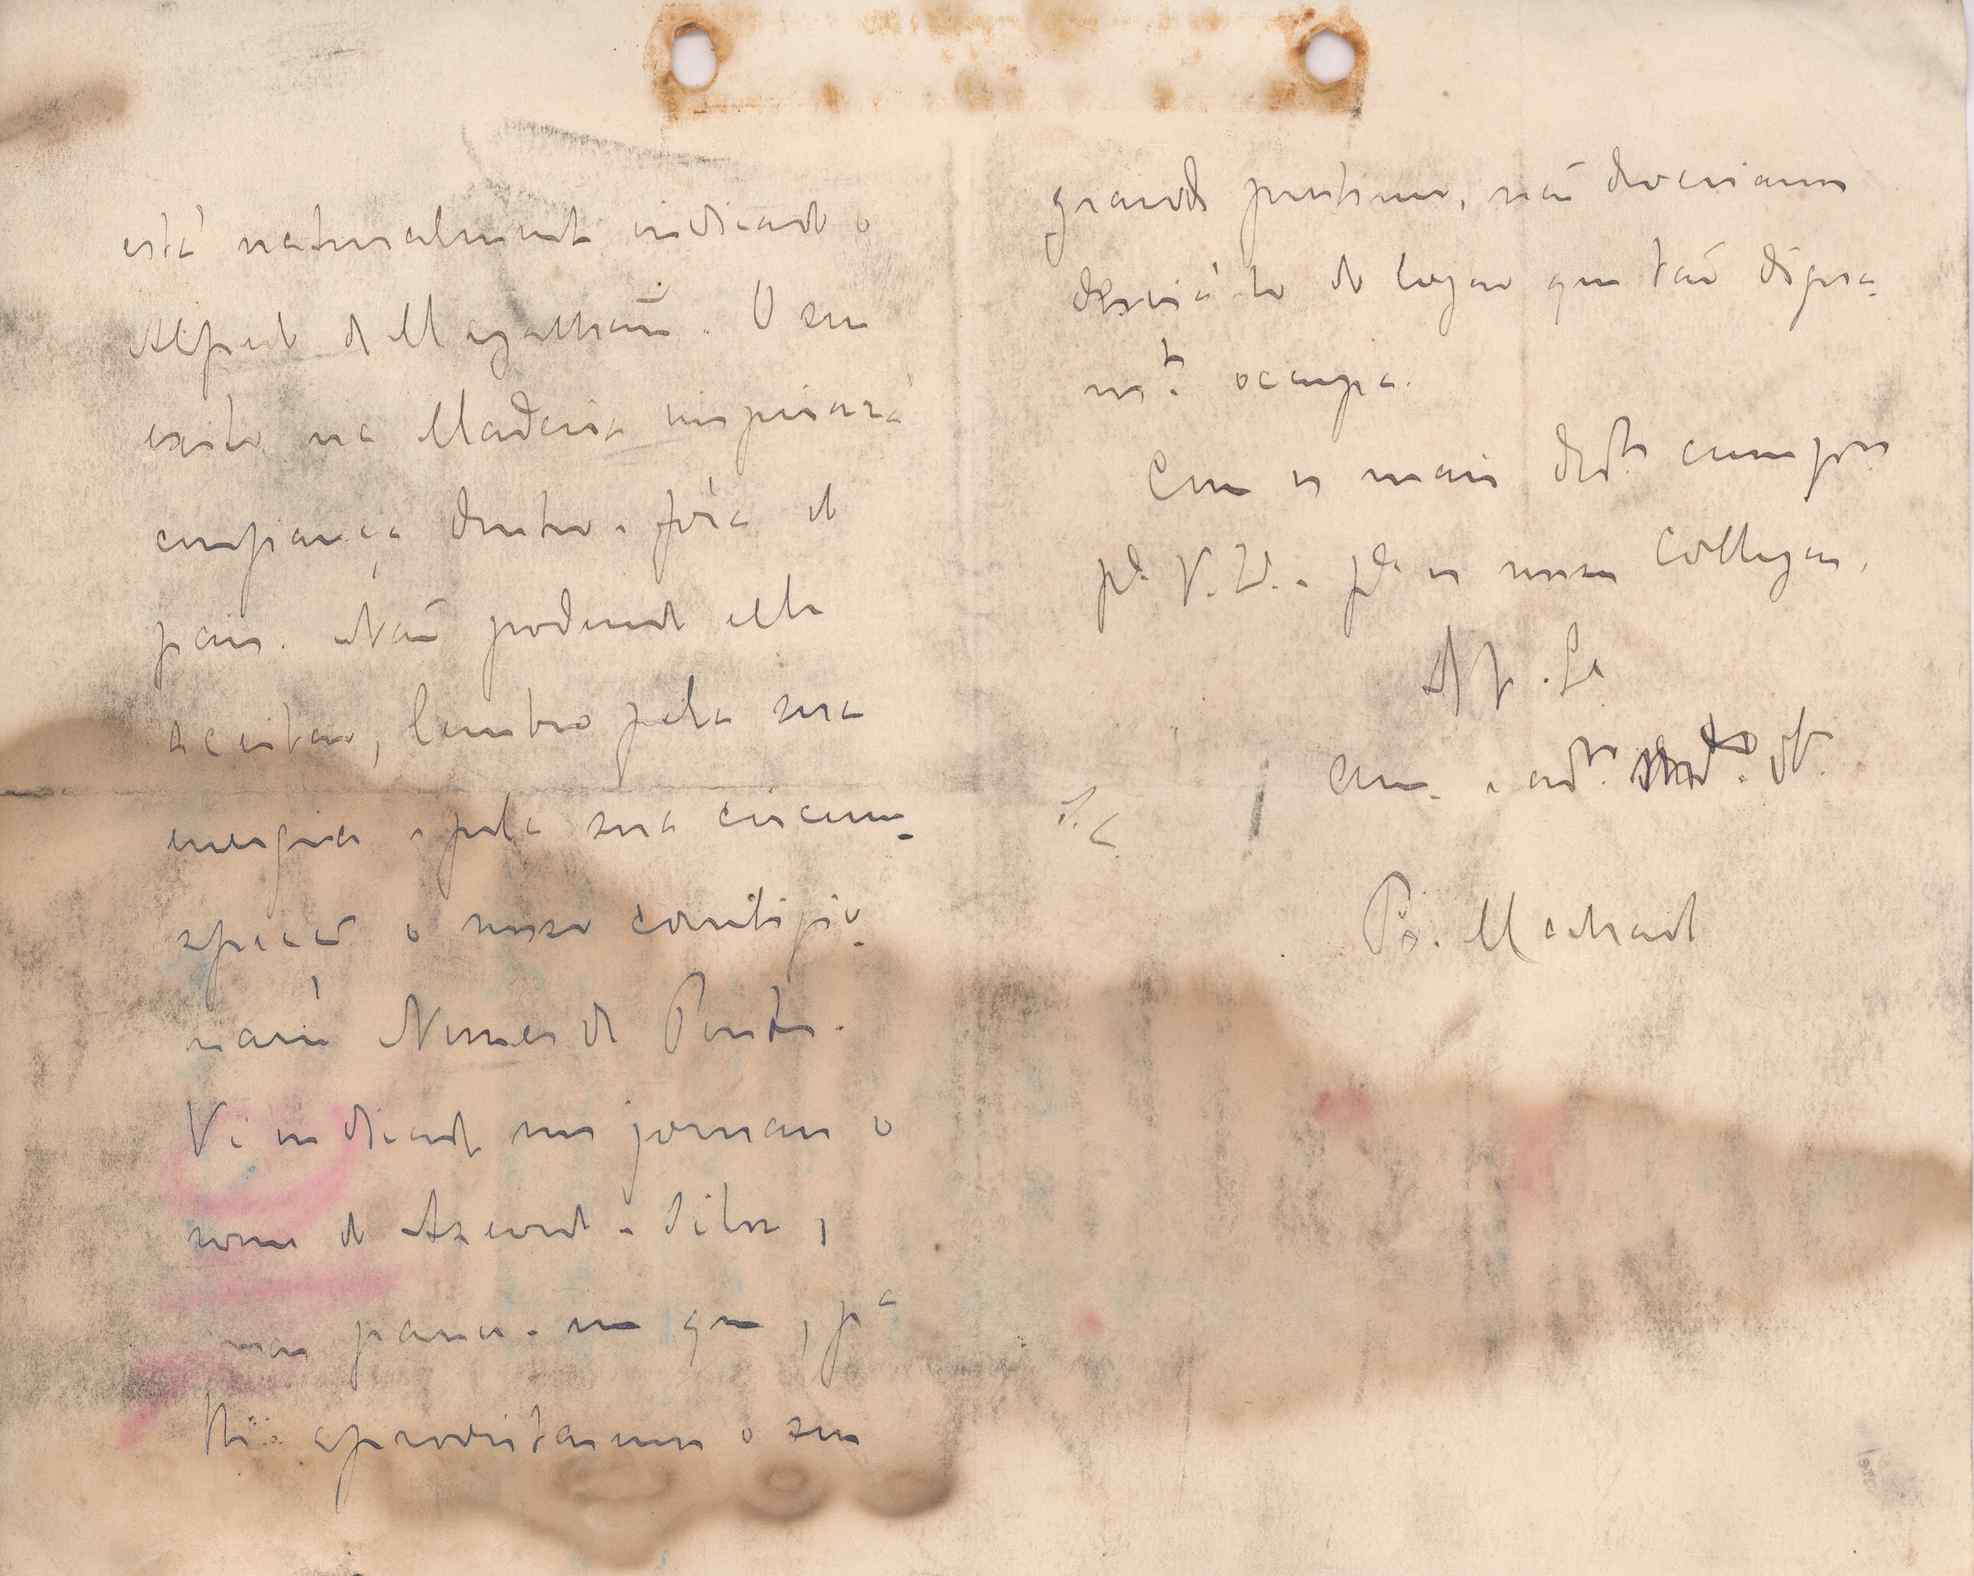 está naturalmente indicado o
Alfredo de Magalhães. O seu
exito na Madeira inspirará
confiança dentro e fóra do
paiz. Não podendo elle
acceitar, lembro pela sua
energia e pela sua circum-
specção o nosso correligio-
nario Nunes da Ponte.
Vi indicado nos jornaes o
nome do Azevedo e Silva,
mas parece-me que, p.ª
aproveitarmos o seu
grande prestimo, não deveriamos
desviá-lo do logar que tão digna-
m.te occupa.
Com os mais dist.os cump.os
p.ª V. E. e p.ª os nossos Collegas,
De V. Ex.
Am.o e ad.or m.to ob.
S. C.
B. Machado